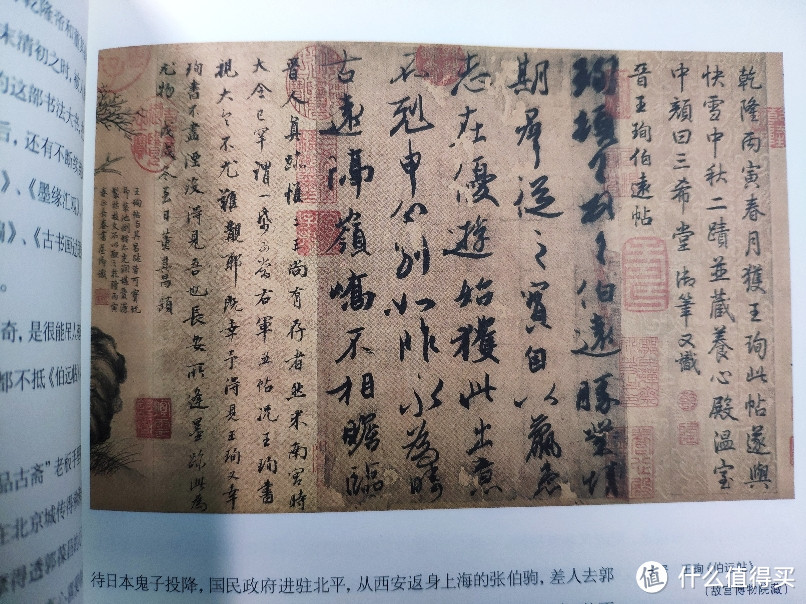 乾隆丙寅春月獲王珣此帖遂與
快雪中秋二蹟並藏養心殿溫室
中顏曰三希堂御筆又識
晉王珣伯遠帖
珣頓首頓首伯遠勝業情
期群從之寶自以羸患
志在優遊始獲此出意
不剋申分別如昨永為疇
古遠隔嶺嶠不相瞻臨
晉人真跡惟二王尚有存者然米南宮時
大令已罕謂一紙可當右軍五帖況王珣書
視大令不尤難覯耶既幸予得見王珣又幸
珣書不盡湮沒得見吾也長安所逢墨跡此為
尤物戊戌冬至日董其昌題
乾隆帝和董其
末清初之时,
的这部书法
后,还有不断续
》、《墨缘汇观》
》、《古书画过眼
。
奇,是很能吊人
都不抵《伯远帖》
品古斋”老板手
在北京城传得
得透郭葆
待日本鬼子投降,国民政府进驻北平,从西安返身上海的张伯驹,差人去郭
王珣《伯远帖》
(故宫博物院藏)
值 什么值得买